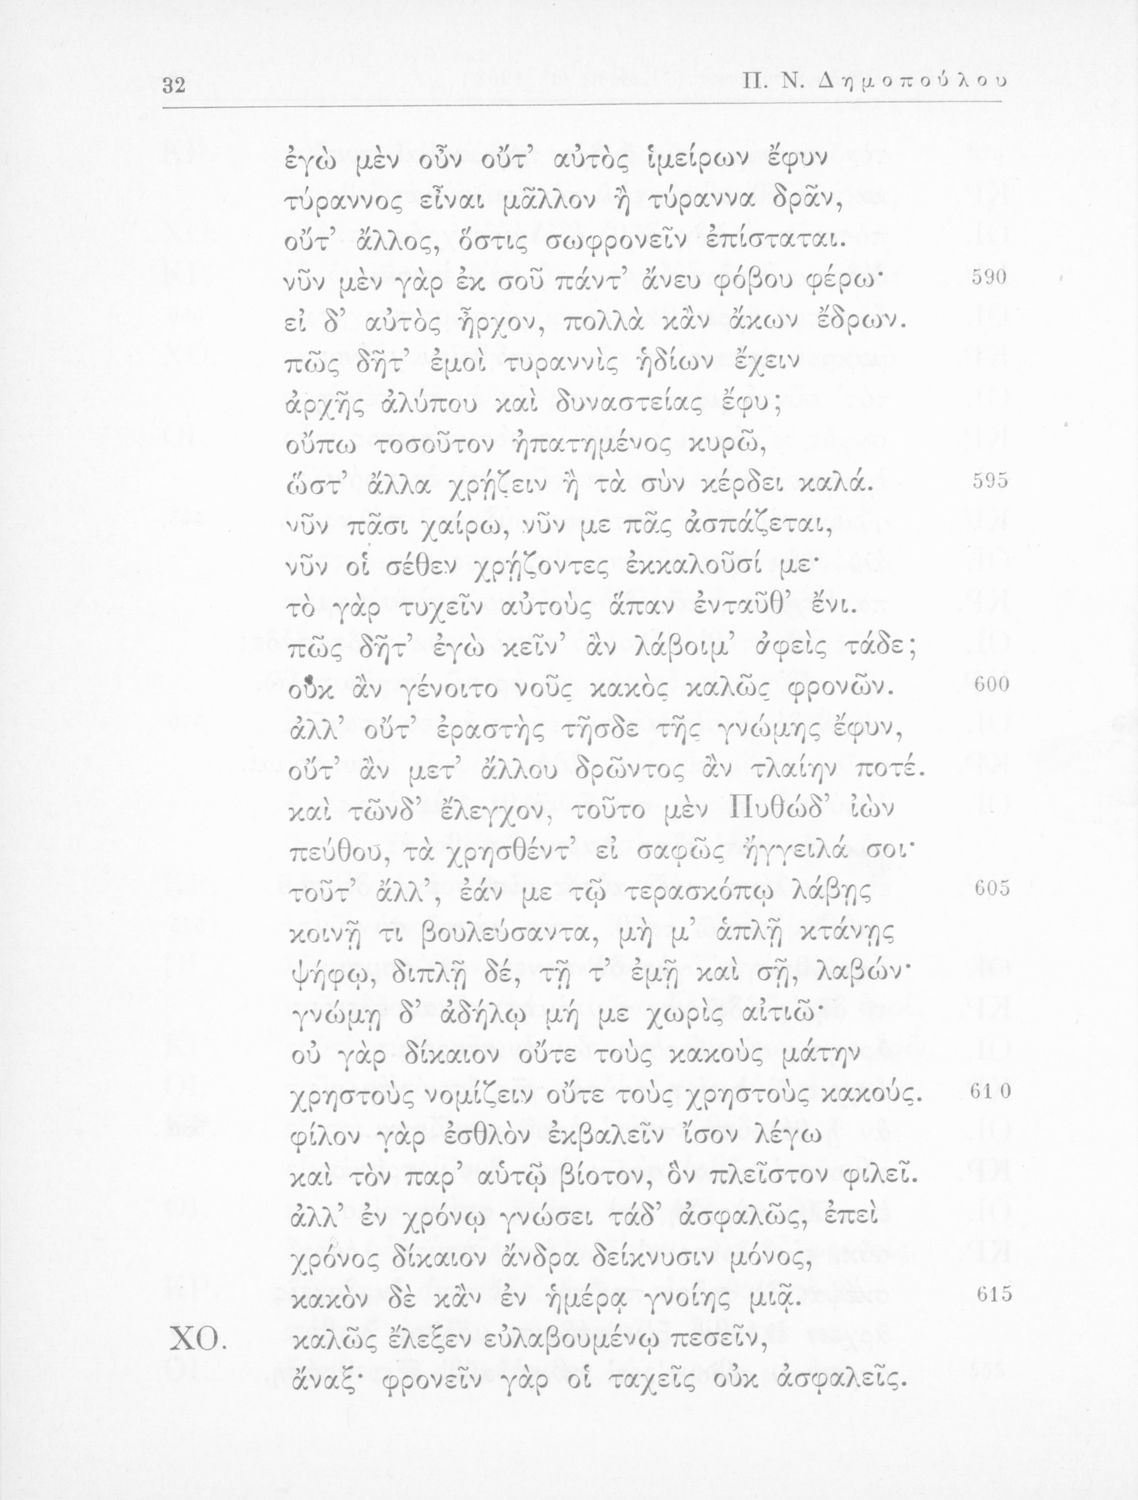 32 Π. Ν. Δημοπούλου
ἐγὼ μὲν οὖν οὔτ’ αὐτὸς ἱμείρων ἔφυν
τύραννος εἶναι μᾶλλον ἢ τύραννα δρᾶν,
οὔτ’ ἄλλος, ὅστις σωφρονεῖν ἐπίσταται.
νῦν μὲν γὰρ ἐκ σοῦ πάντ’ ἄνευ φόβου φέρω· 590
εἰ δ’ αὐτὸς ἦρχον, πολλὰ κἂν ἄκων ἔδρων.
πῶς δῆτ’ ἐμοὶ τυραννὶς ἡδίων ἔχειν
ἀρχῆς ἀλύπου καὶ δυναστείας ἔφυ;
οὔπω τοσοῦτον ἠπατημένος κυρῶ,
ὥστ’ ἄλλα χρῄζειν ἢ τὰ σὺν κέρδει καλά. 595
νῦν πᾶσι χαίρω, νῦν με πᾶς ἀσπάζεται,
νῦν οἱ σέθεν χρῄζοντες ἐκκαλοῦσί με·
τὸ γὰρ τυχεῖν αὐτοὺς ἅπαν ἐνταῦθ’ ἔνι.
πῶς δῆτ’ ἐγὼ κεῖν’ ἂν λάβοιμ’ ἀφεὶς τάδε;
οὐκ ἂν γένοιτο νοῦς κακὸς καλῶς φρονῶν. 600
ἀλλ’ οὔτ’ ἐραστὴς τῆσδε τῆς γνώμης ἔφυν,
οὔτ’ ἂν μετ’ ἄλλου δρῶντος ἂν τλαίην ποτέ.
καὶ τῶνδ’ ἔλεγχον, τοῦτο μὲν Πυθώδ’ ἰὼν
πεύθου, τὰ χρησθέντ’ εἰ σαφῶς ἤγγειλά σοι·
τοῦτ’ ἄλλ’, ἐάν με τῷ τερασκόπῳ λάβῃς 605
κοινῇ τι βουλεύσαντα, μὴ μ’ ἁπλῇ κτάνῃς
ψήφῳ, διπλῇ δέ, τῇ τ’ ἐμῇ καὶ σῇ, λαβών·
γνώμῃ δ’ ἀδήλῳ μή με χωρὶς αἰτιῶ·
οὐ γὰρ δίκαιον οὔτε τοὺς κακοὺς μάτην
χρηστοὺς νομίζειν οὔτε τοὺς χρηστοὺς κακούς. 610
φίλον γὰρ ἐσθλὸν ἐκβαλεῖν ἴσον λέγω
καὶ τὸν παρ’ αὑτῷ βίοτον, ὃν πλεῖστον φιλεῖ.
ἀλλ’ ἐν χρόνῳ γνώσει τάδ’ ἀσφαλῶς, ἐπεὶ
χρόνος δίκαιον ἄνδρα δείκνυσιν μόνος,
κακὸν δὲ κἂν ἐν ἡμέρᾳ γνοίης μιᾷ. 615
ΧΟ. καλῶς ἔλεξεν εὐλαβουμένῳ πεσεῖν,
ἄναξ· φρονεῖν γὰρ οἱ ταχεῖς οὐκ ἀσφαλεῖς.